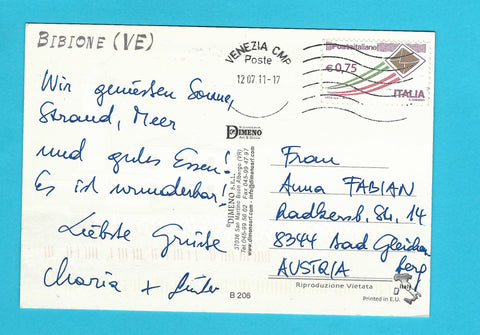 BIBIONE (VE)
VENEZIA CMP
Poste
12.07.11-17
Posteitaliane
€0,75
ITALIA
Wir geniessen Sonne,
Strand, Meer
und gutes Essen!
Es ist wunderbar!
Liebste Grüsse
Maria + Günter
DIMENO
DIMENO S.R.L.
37036 San Martino Buon Albergo (VR)
Tel. 045-99 56 02 - Fax 045-99 47 97
www.dimenosrl.com - info@dimenosrl.com
B 206
Frau
Anna FABIAN
Radkersb. Str. 14
8344 Bad Gleichen
berg
AUSTRIA
Riproduzione Vietata
Printed in E.U.